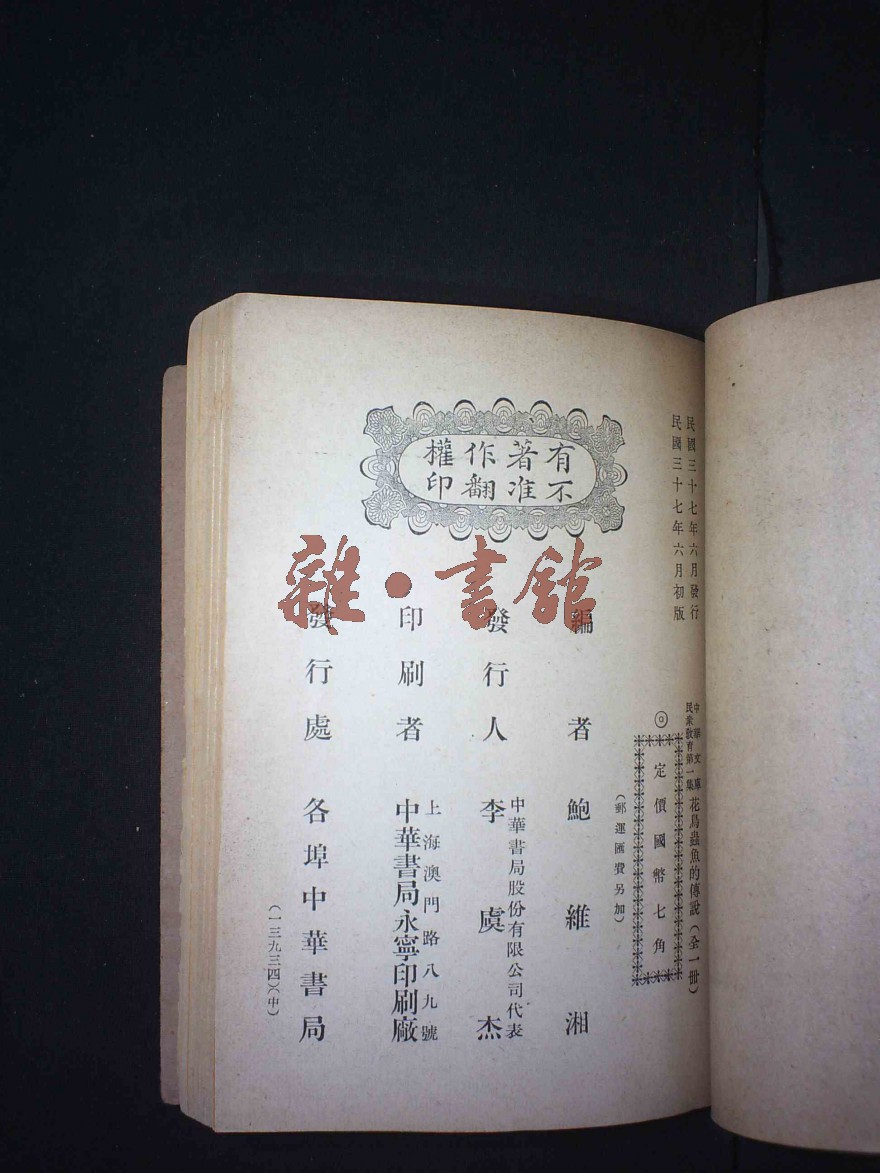 民國三十七年六月發行
民國三十七年六月初版
中華文庫
民衆教育第一集
花鳥蟲魚的傳說(全一冊)
定價國幣七角
(郵運匯費另加)
有著作權
不准翻印
編者 鮑維湘
發行人 李虞杰
中華書局股份有限公司代表
印刷者 中華書局永寧印刷廠
上海澳門路八九號
發行處 各埠中華書局
(一三九三四)(中)
雜·書館